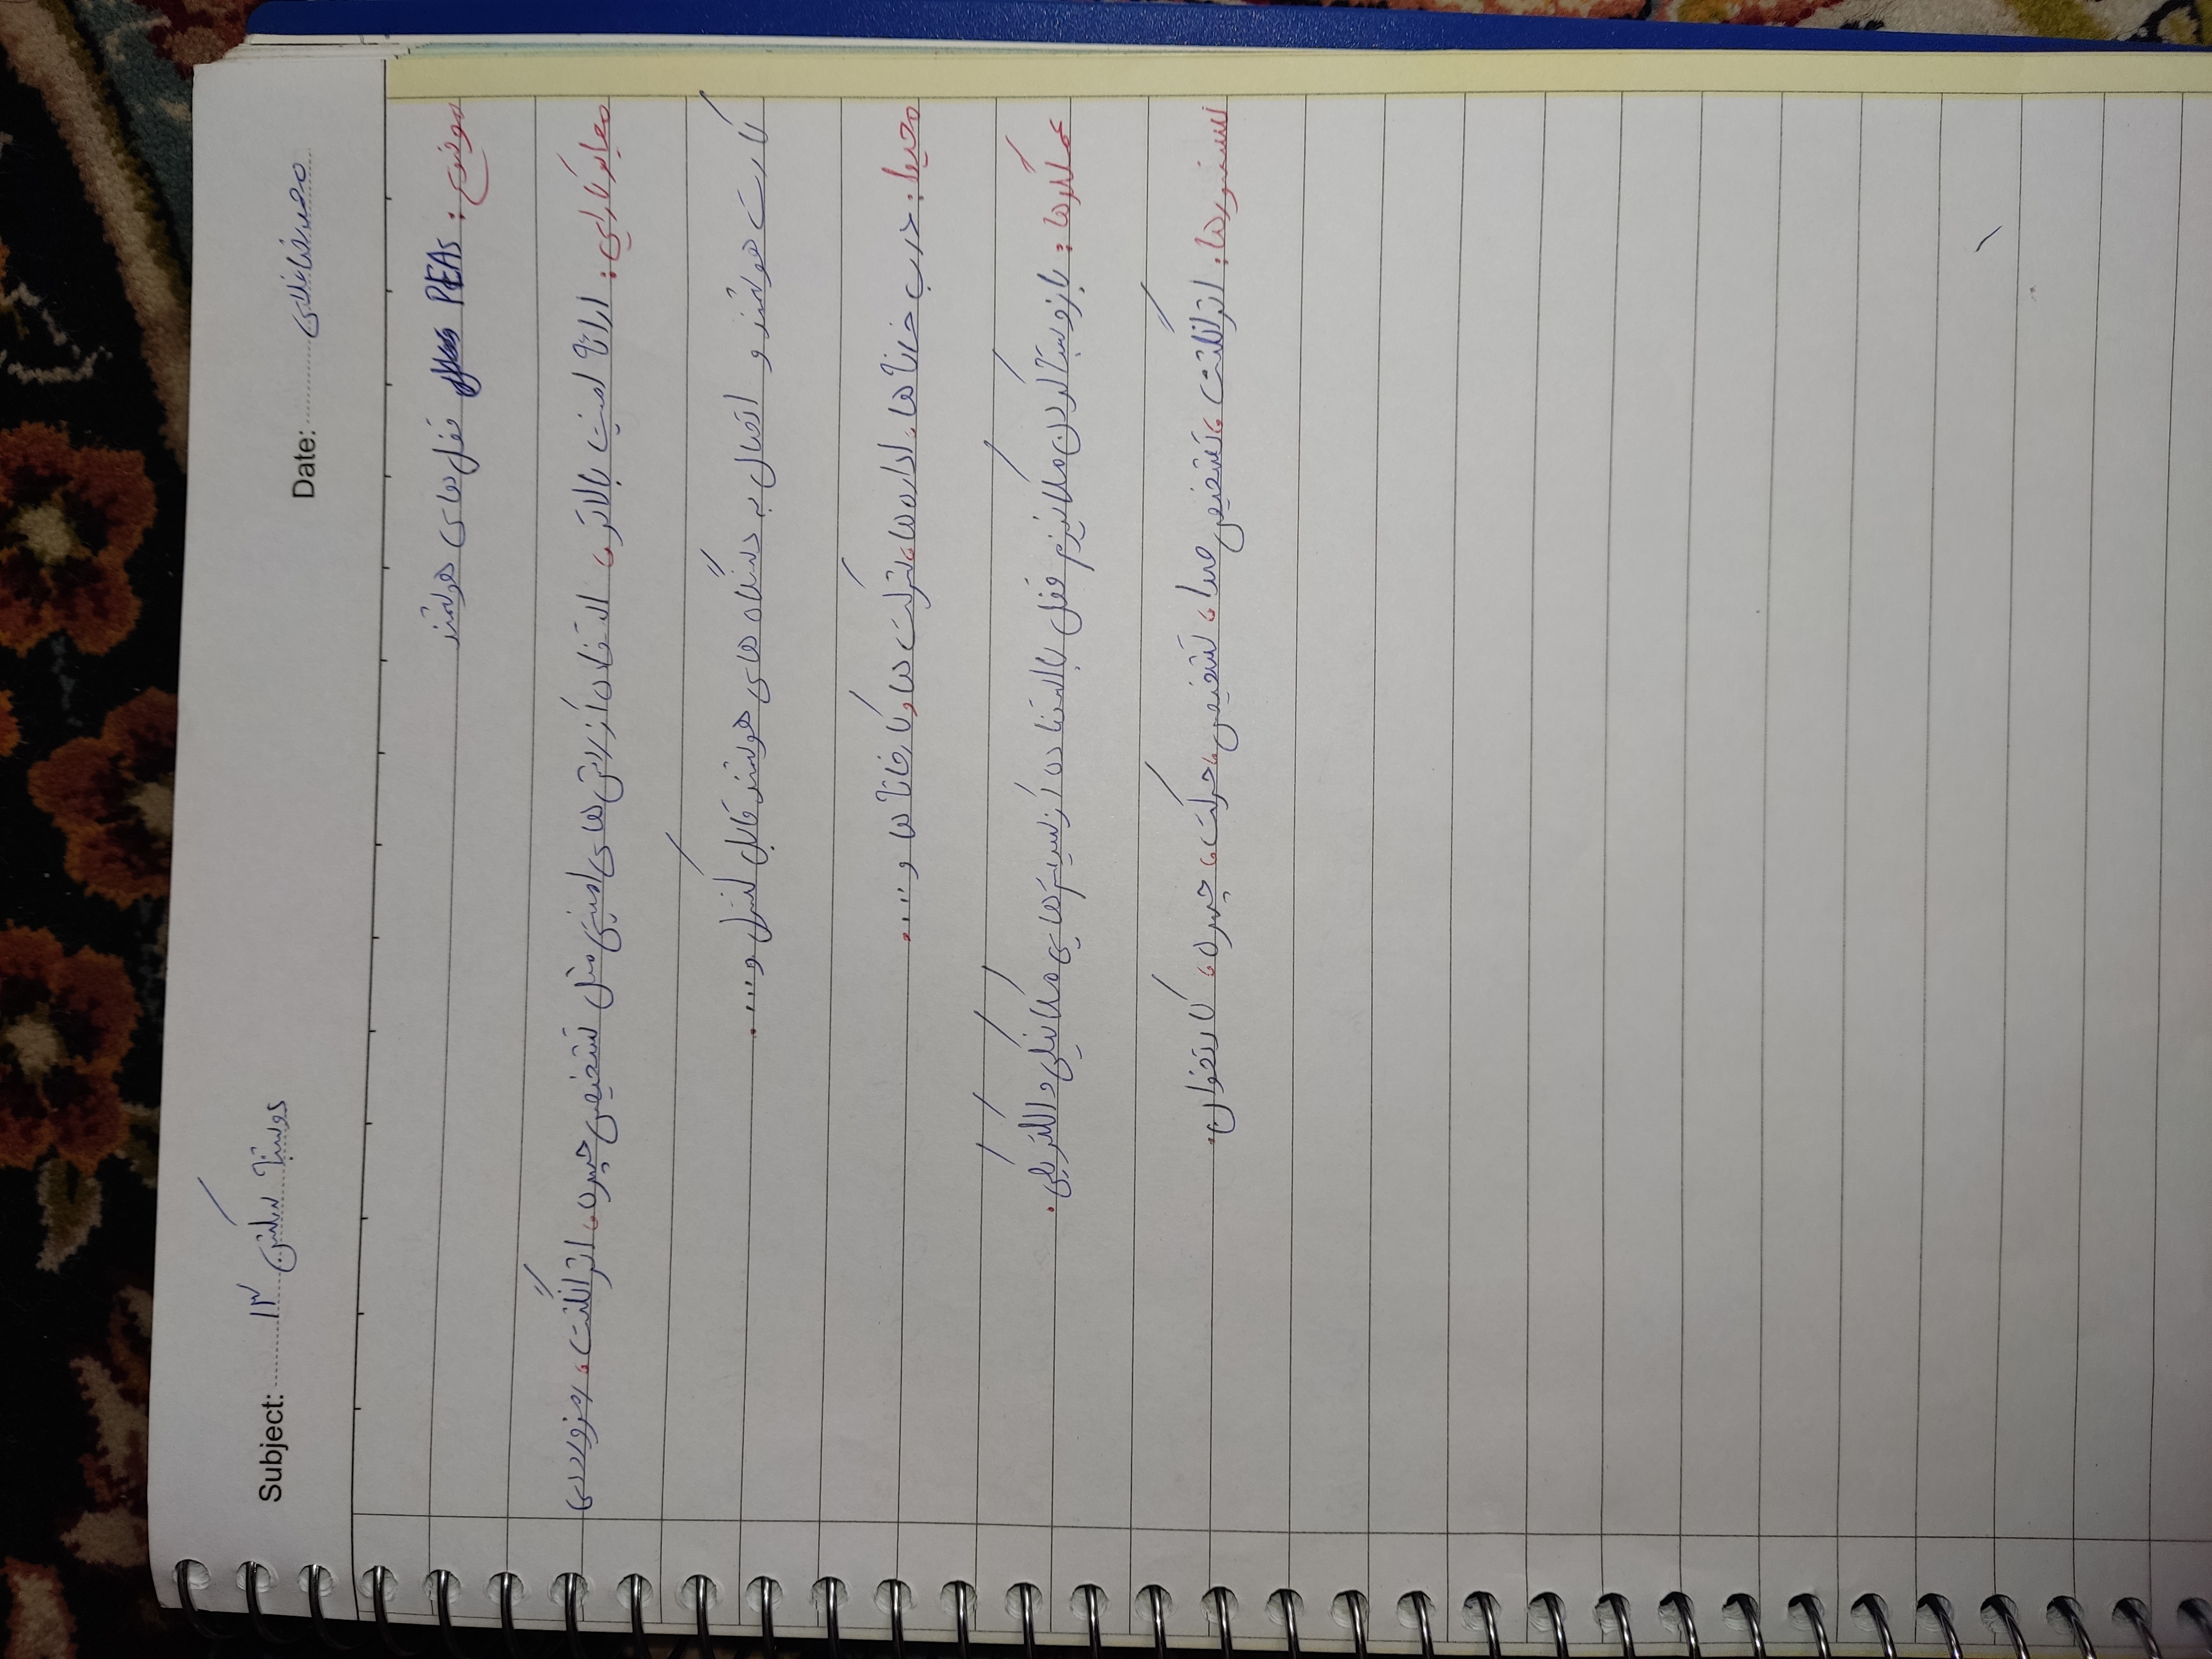 Subject: دوشنبه سکشن ۱۳
Date: محمدرضا غلامی
موضوع: PEAS قفل های هوشمند
معیار کارایی: ارائه امنیت بالاتر، استفاده از روش های امنیتی مثل تشخیص چهره، اثر انگشت، رمز ورودی
کارت هوشمند و اتصال به دستگاه های هوشمند قابل کنترل و....
محیط: درب خانه ها، اداره ها، شرکت ها، کارخانه ها و....
عملگرها: باز و بسته کردن مکانیزم قفل با استفاده از سیستم هایی مکانیکی و الکتریکی.
سنسورها: اثر انگشت، تشخیص صدا، تشخیص، حرکت، چهره، کارتخوان.